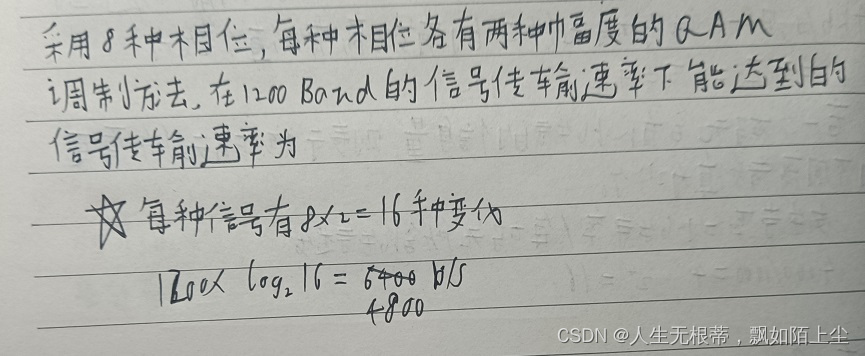 采用8种相位,每种相位各有两种幅度的QAM
调制方法,在1200Band的信号传输速率下能达到的
信号传输速率为
☆每种信号有8×2=16种变化
1200× log₂16 = 6400 b/s
4800
CSDN @人生无根蒂,飘如陌上尘